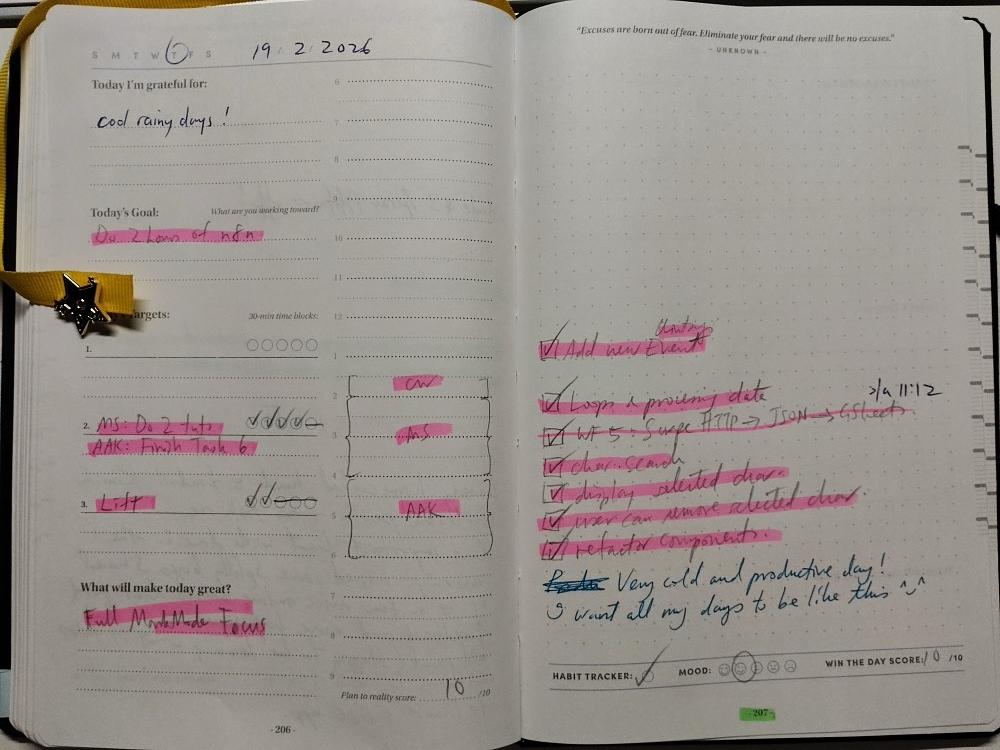 S M T W T F S 19 . 2 . 2026
Today I'm grateful for:
cool rainy days!
Today's Goal: What are you working toward?
Do 2 hours of n8n
argets: 30-min time blocks:
1.
2. MS: Do 2 tuts
AAK: Finish Task 6
3. Lift
What will make today great?
Full MonkMode Focus
6
7
8
9
10
11
12
1
CW
2
3 MS
4
5 AAK
6
7
8
9
Plan to reality score: 10 /10
- 206 -
"Excuses are born out of fear. Eliminate your fear and there will be no excuses."
- UNKNOWN -
Add new Event
Loops & processing data
11:12
WF 5: Scrape HTTP → JSON → GSheets
char. search
display selected char.
user can remove selected char.
refactor components.
Very cold and productive day!
I want all my days to be like this
HABIT TRACKER: MOOD: WIN THE DAY SCORE: 10 /10
- 207 -